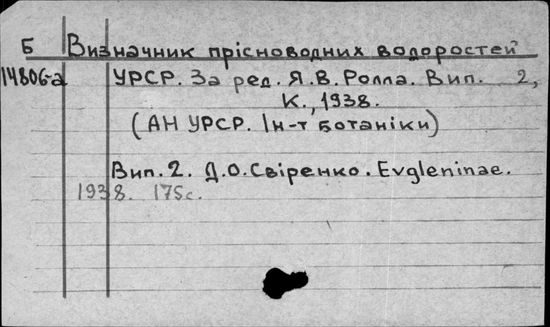 Б Визначник прісноводних водоростей
14806-а УРСР. За ред. Я.В. Ролла. Вип. 2,
К., 1938.
(АН УРСР. Ін-т ботаніки)
Вип. 2. Д.О. Свіренко. Evgleninae.
1938. 175с.